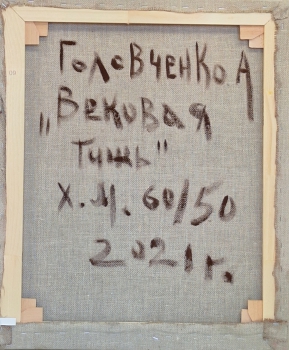 Головченко А
„Вековая
тишь"
х.м. 60/50
2021г.